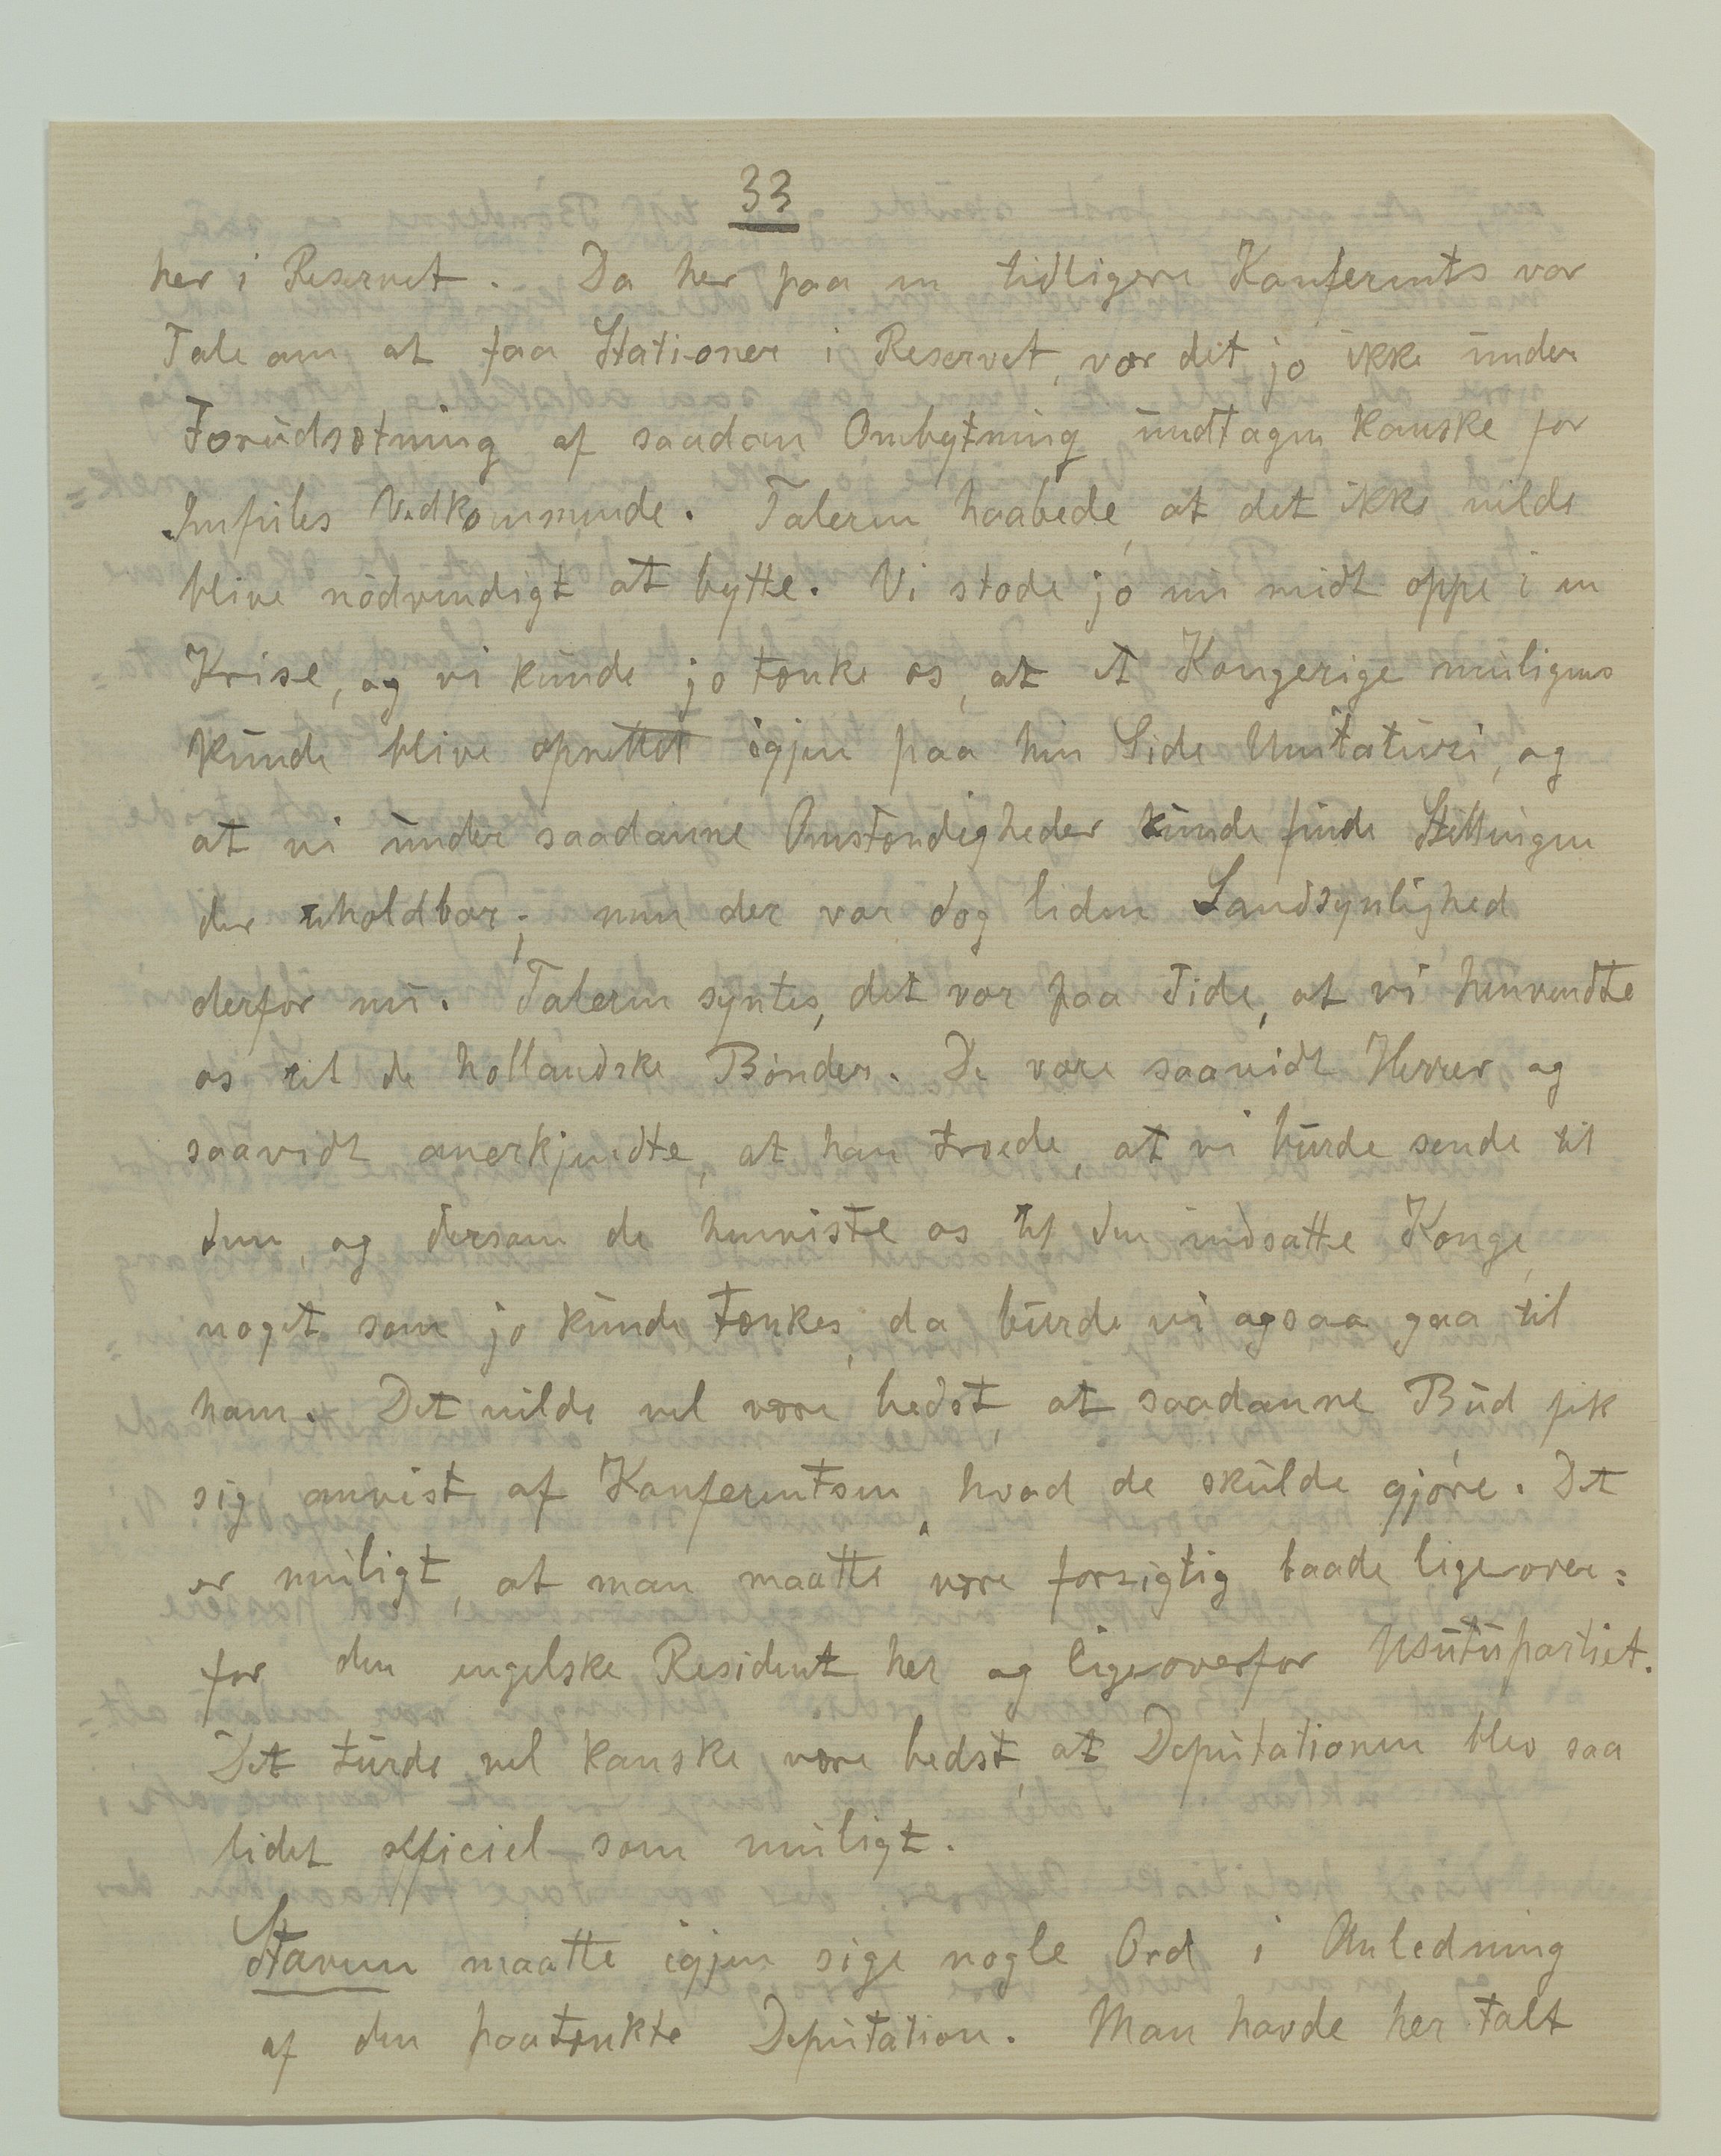 33
her i Reservet. Da her paa en tidligere Konferents var
Tale om at faa Stationer i Reservet, var det jo ikke under
Forudsætning af saadan Ombytning undtagen kanske for
Impiles Vedkommende. Taleren haabede, at det ikke vilde
blive nödvendigt at bytte. Vi stode jo nu midt oppe i en
Krise, og vi kunde jo tænke os, at et Kongerige muligens
kunde blive oprettet igjen paa hin Side Umlatuzi, og
at vi under saadanne Omstændigheder kunde finde Stillingen
der uholdbar; men der var dog liden Sandsynlighed
derfor nu. Taleren syntes, det var paa Tide, at vi henvendte
os til de hollandske Bönder. De vare saavidt Herrer og
saavidt anerkjendte, at han troede, at vi burde sende til
dem, og dersom de henviste os til den indsatte Konge,
noget som jo kunde tænkes, da burde vi ogsaa gaa til
ham. Det vilde vel være bedst, at saadanne Bud fik
sig anvist af Konferentsen, hvad de skulde gjöre. Det
er muligt, at man maatte være forsigtig baade ligeover=
for den engelske Resident her og ligeoverfor Usutupartiet.
Det turde vel kanske være bedst, at Deputationen blev saa
lidet officiel som muligt.
Stavem maatte igjen sige nogle Ord i Anledning
af den paatænkte Deputation. Man havde her talt